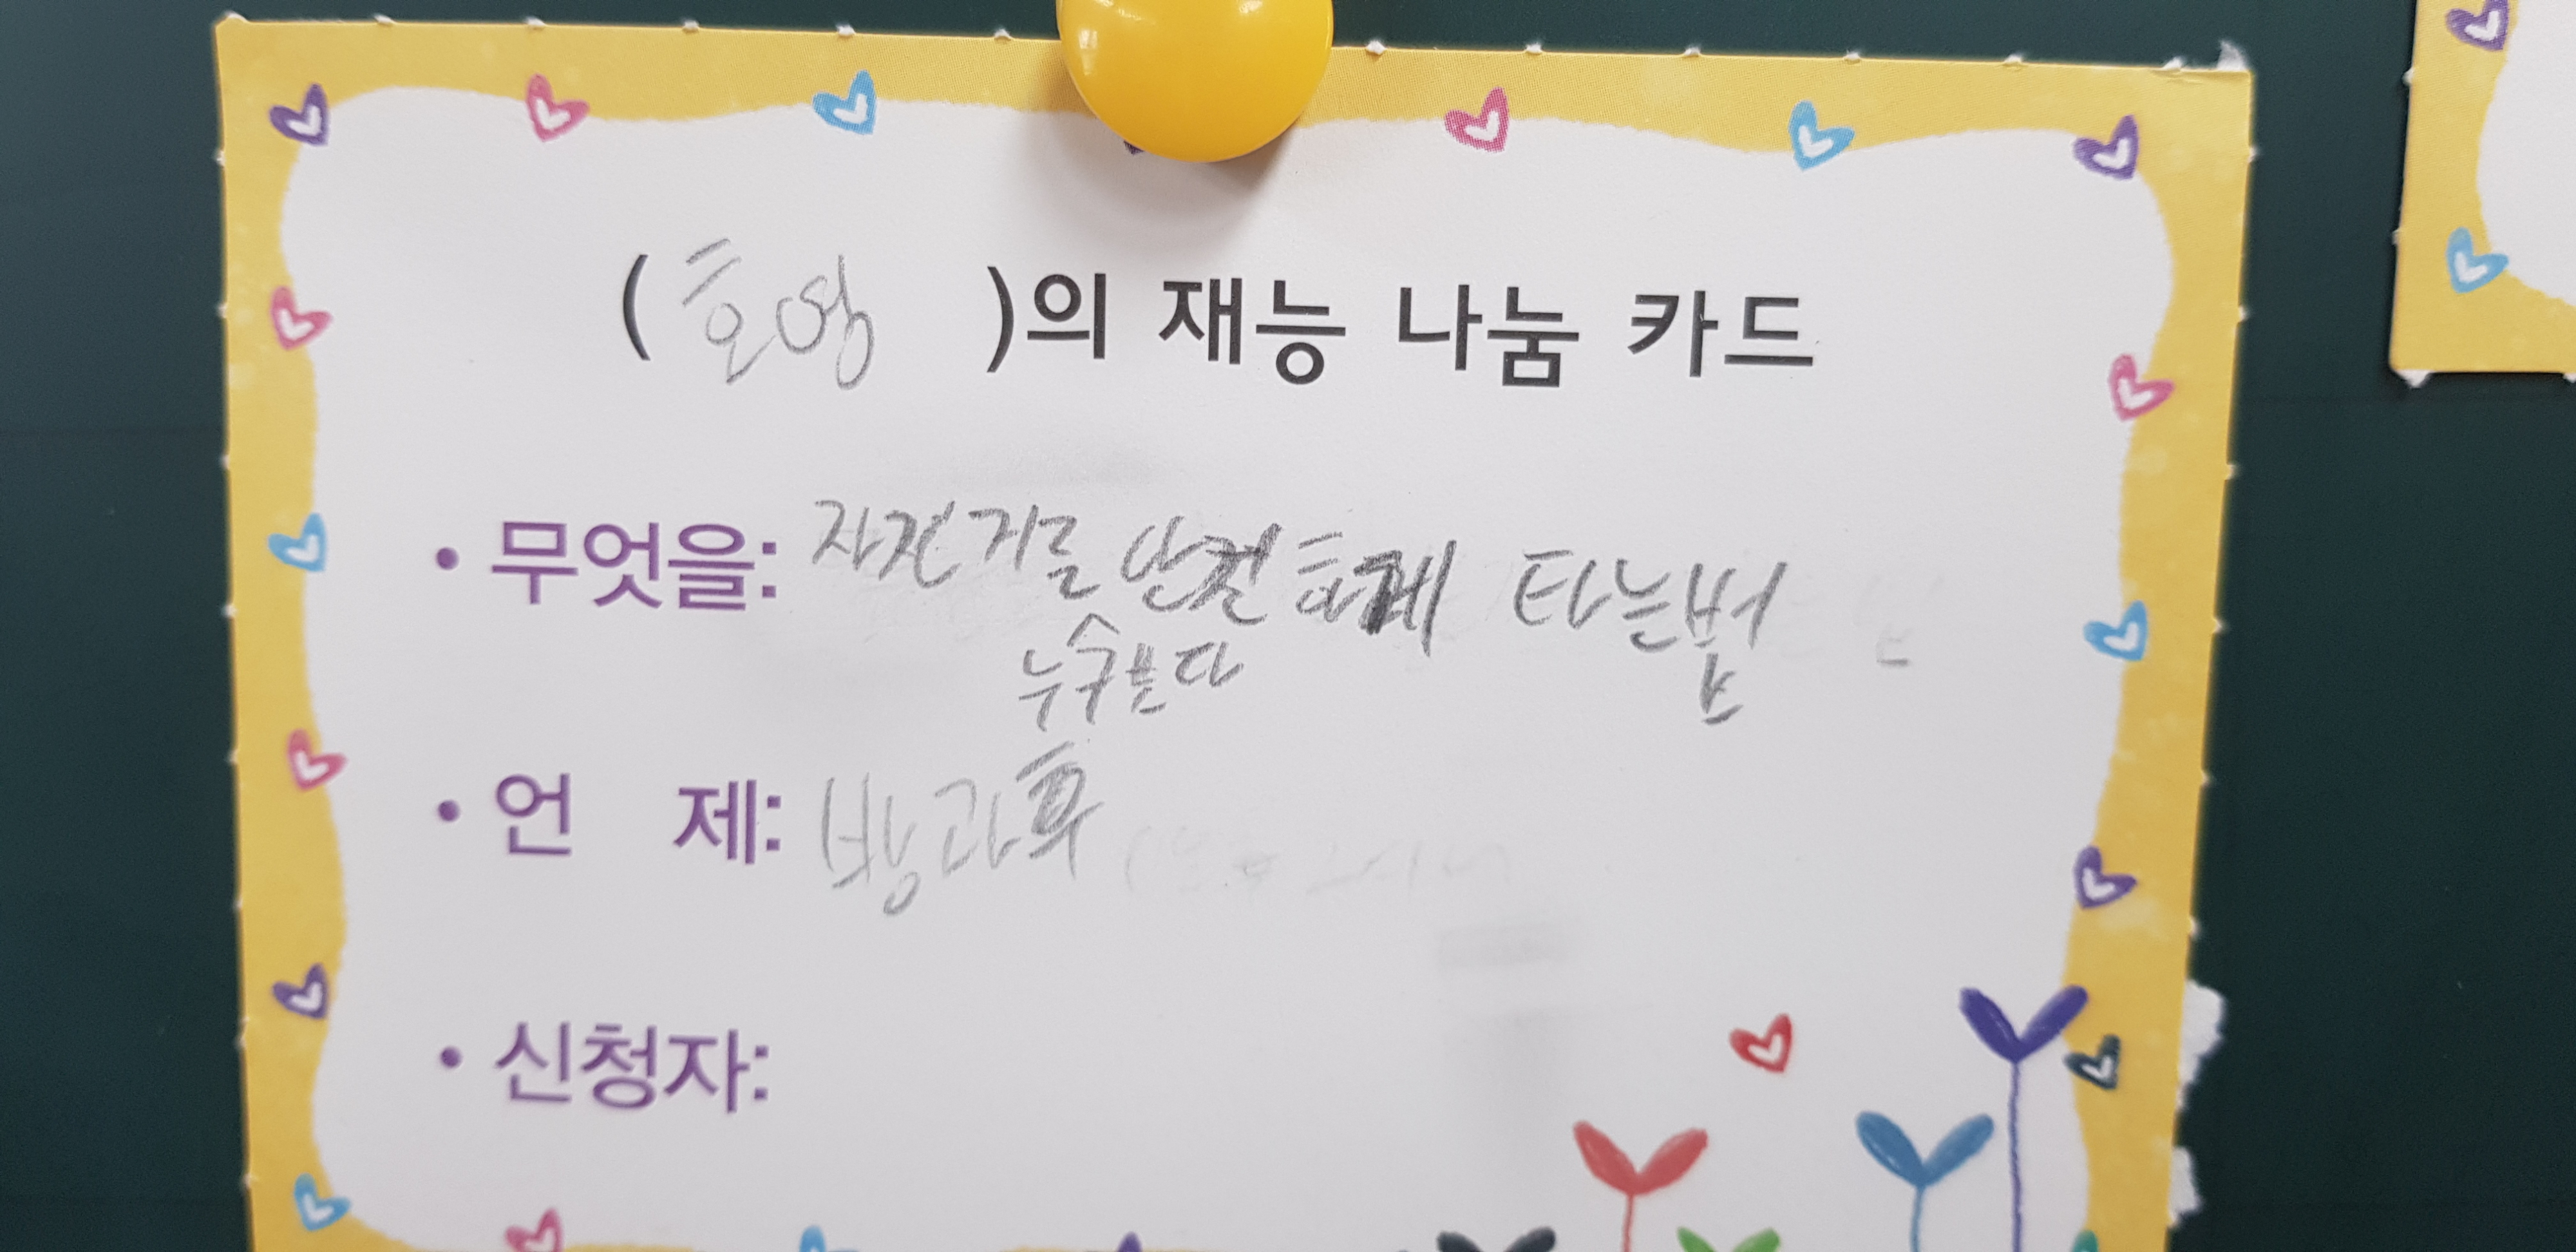 (호영 )의 재능 나눔 카드
• 무엇을: 자전거를 안전하게 타는법
누구보다
• 언 제: 방과후
• 신청자: